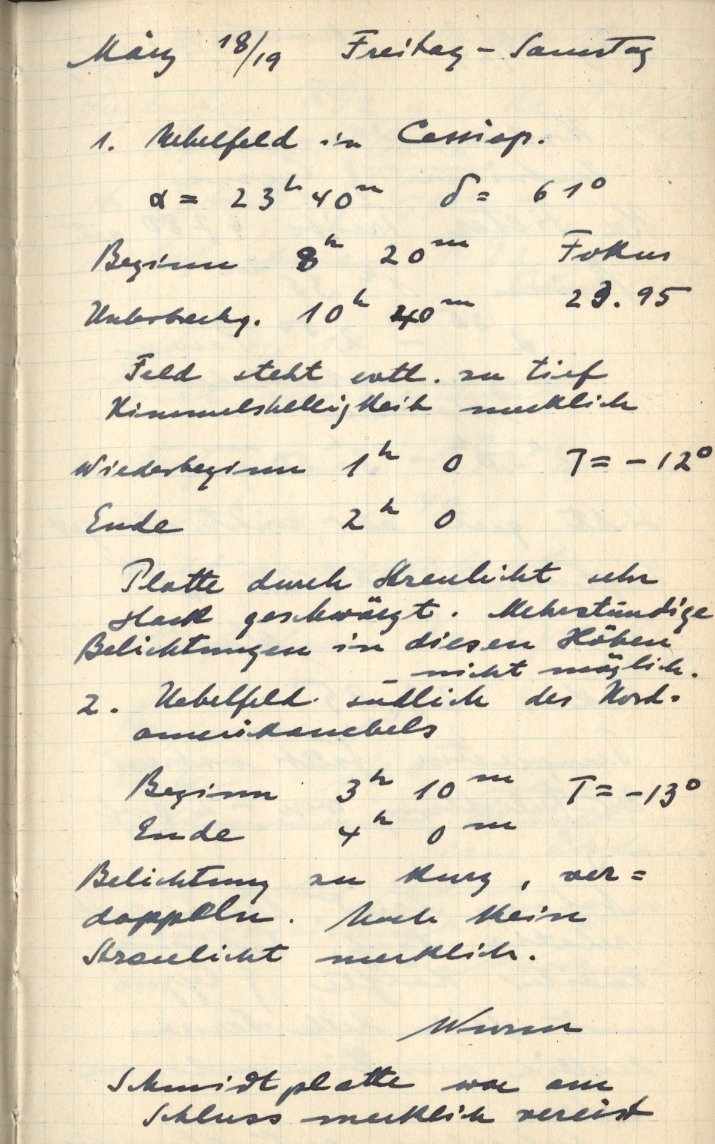 März 18/19 Freitag - Samstag
1. Nebelfeld in Cassiop.
α = 23h 40m δ = 61°
Beginn 8h 20m Fokus
Unterbrechg. 10h 40m 23.95
Feld steht evtl. zu tief
Himmelshelligkeit merklich
Wiederbeginn 1h 0 T = -12°
Ende 2h 0
Platte durch Streulicht sehr
stark geschwärzt. Mehrstündige
Belichtungen in diesen Höhen
nicht möglich.
2. Nebelfeld südlich des Nord-
amerikanebels
Beginn 3h 10m T = -13°
Ende 4h 0m
Belichtung zu kurz, ver=
doppeln. Noch kein
Streulicht merklich.
Wurm
Schmidtplatte war am
Schluss merklich vereist